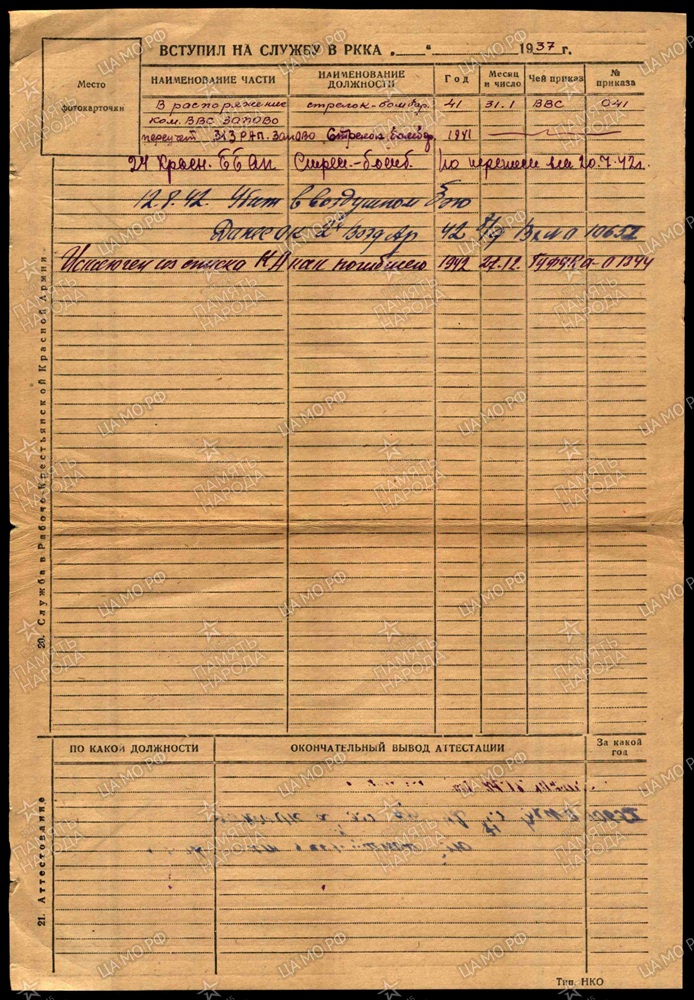 ВСТУПИЛ НА СЛУЖБУ В РККА „ “ 1937 г.
Место фотокарточки
НАИМЕНОВАНИЕ ЧАСТИ НАИМЕНОВАНИЕ ДОЛЖНОСТИ Год Месяц и число Чей приказ № приказа
В распоряжение стрелок-бомбар. 41 31.1 ВВС 041
ком. ВВС ЗАПОВО
переучет 313 РАП. Запово Стрелок бомбар. 1941
24 Красн. ББАП Стрел.-бомб. по переписи на 20.7.42г.
12.8.42. Убит в воздушном бою
Возд Ар 42
Исключен из списка КА как погибшего 1942 27.12. ГУФУКА 01944
20. Служба в Рабоче-Крестьянской Красной Армии
ПО КАКОЙ ДОЛЖНОСТИ ОКОНЧАТЕЛЬНЫЙ ВЫВОД АТТЕСТАЦИИ За какой год
21. Аттестование
Тип. НКО
ПАМЯТЬ НАРОДА
ЦАМО.РФ